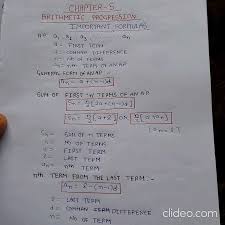 CHAPTER-5
ARITHMETIC PROGRESSION
IMPORTANT FORMULAS
AP a1, a2, a3 an
a - FIRST TERM
d - COMMON DIFFERENCE
n - NO OF TERMS
an - nth TERM OF AN AP
GENERAL FORM OF AN AP
an = a+(n-1)d
SUM OF FIRST n TERMS OF AN AP
Sn = n/2[2a+(n-1)d]
Sn = n/2[a+l] OR Sn = n/2[a+an]
[an=l]
Sn = SUM OF n TERMS
n = NO OF TERMS
a = FIRST TERM
l = LAST TERM
an = LAST TERM
nth TERM FROM THE LAST TERM :-
an = l-(n-1)d
l = LAST TERM
d = COMMON DIFFERENCE
n = NO OF TERM
clideo.com